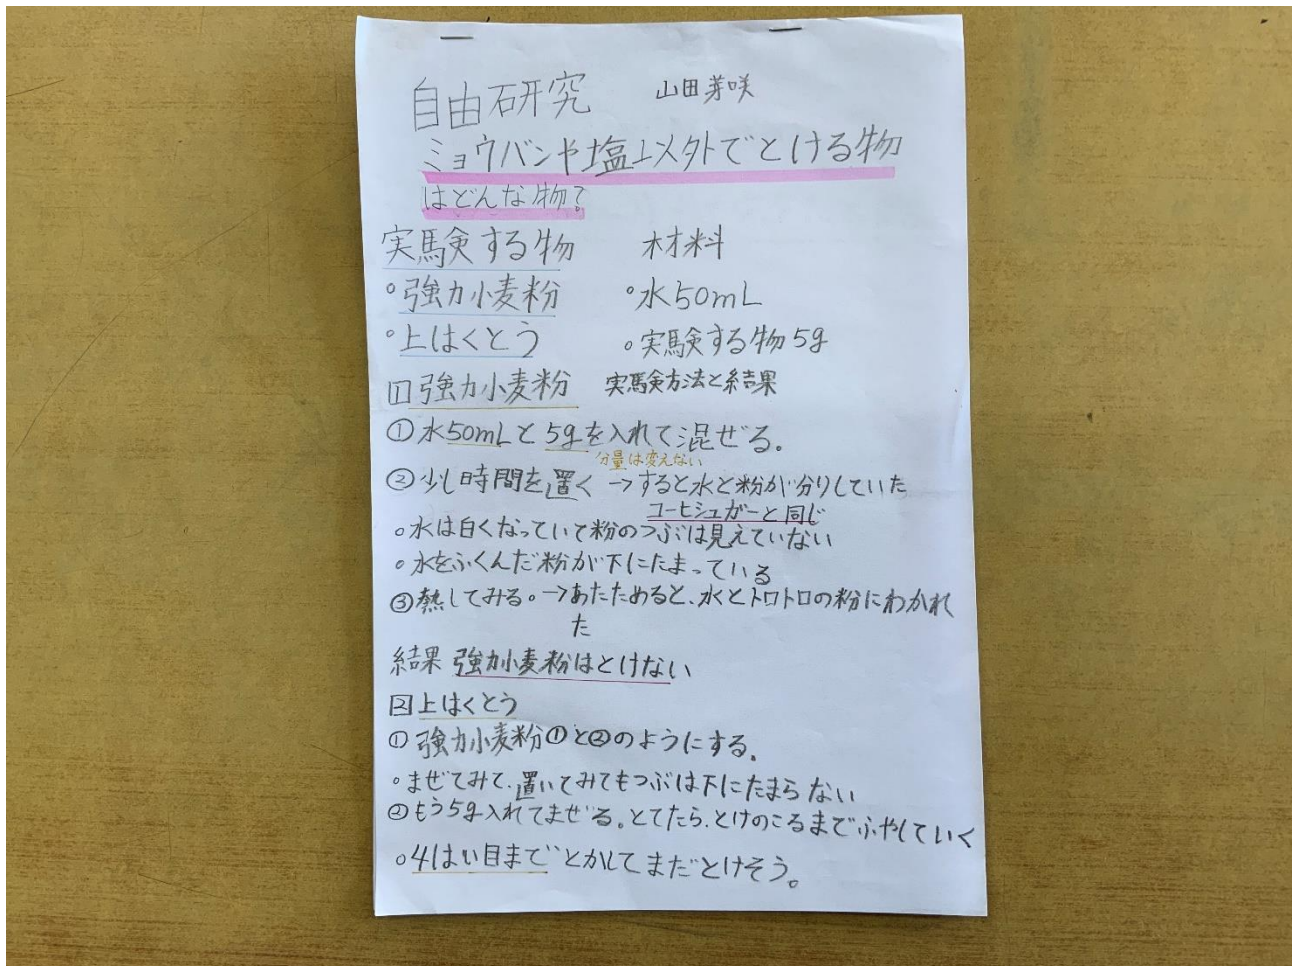 自由研究 山田芽咲
ミョウバンや塩以外でとける物
はどんな物?
実験する物 材料
・強力小麦粉 ・水50mL
・上はくとう ・実験する物5g
1 強力小麦粉 実験方法と結果
① 水50mLと5gを入れて混ぜる。
分量は変えない
② 少し時間を置く→すると水と粉が分りしていた
コーヒシュガーと同じ
・水は白くなっていて粉のつぶは見えていない
・水をふくんだ粉が下にたまっている
③熱してみる。→あたためると、水とトロトロの粉にわかれ
た
結果 強力小麦粉はとけない
2 上はくとう
① 強力小麦粉①と②のようにする。
・まぜてみて、置いてみてもつぶは下にたまらない
②もう5g入れてまぜる。とてたら、とけのこるまでふやしていく
・4はい目までとかしてまだとけそう。